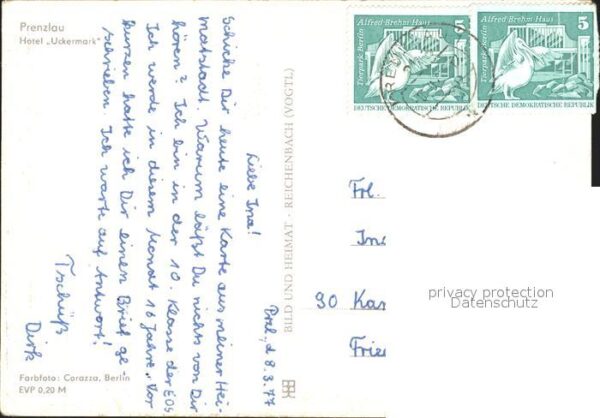 Prenzlau
Hotel „Uckermark“
Przl., d. 8.3.77
Liebe Ina!
Schicke Dir heute eine Karte aus meiner Hei-
matstadt. Warum läßt Du nichts von Dir
hören? Ich bin in der 10. Klasse der EOS
Ich werde in diesem Monat 16 Jahre. Vor
kurzen hatte ich Dir einen Brief ge-
schrieben. Ich warte auf Antwort!
Tschüß
Dirk
Farbfoto: Corazza, Berlin
EVP 0,20 M
BILD UND HEIMAT · REICHENBACH (VOGTL)
Alfred-Brehm-Haus
5
Tierpark Berlin
DEUTSCHE DEMOKRATISCHE REPUBLIK
Alfred-Brehm-Haus
5
Tierpark Berlin
DEUTSCHE DEMOKRATISCHE REPUBLIK
Frl.
In
90 Kar
Frie
privacy protection
Datenschutz